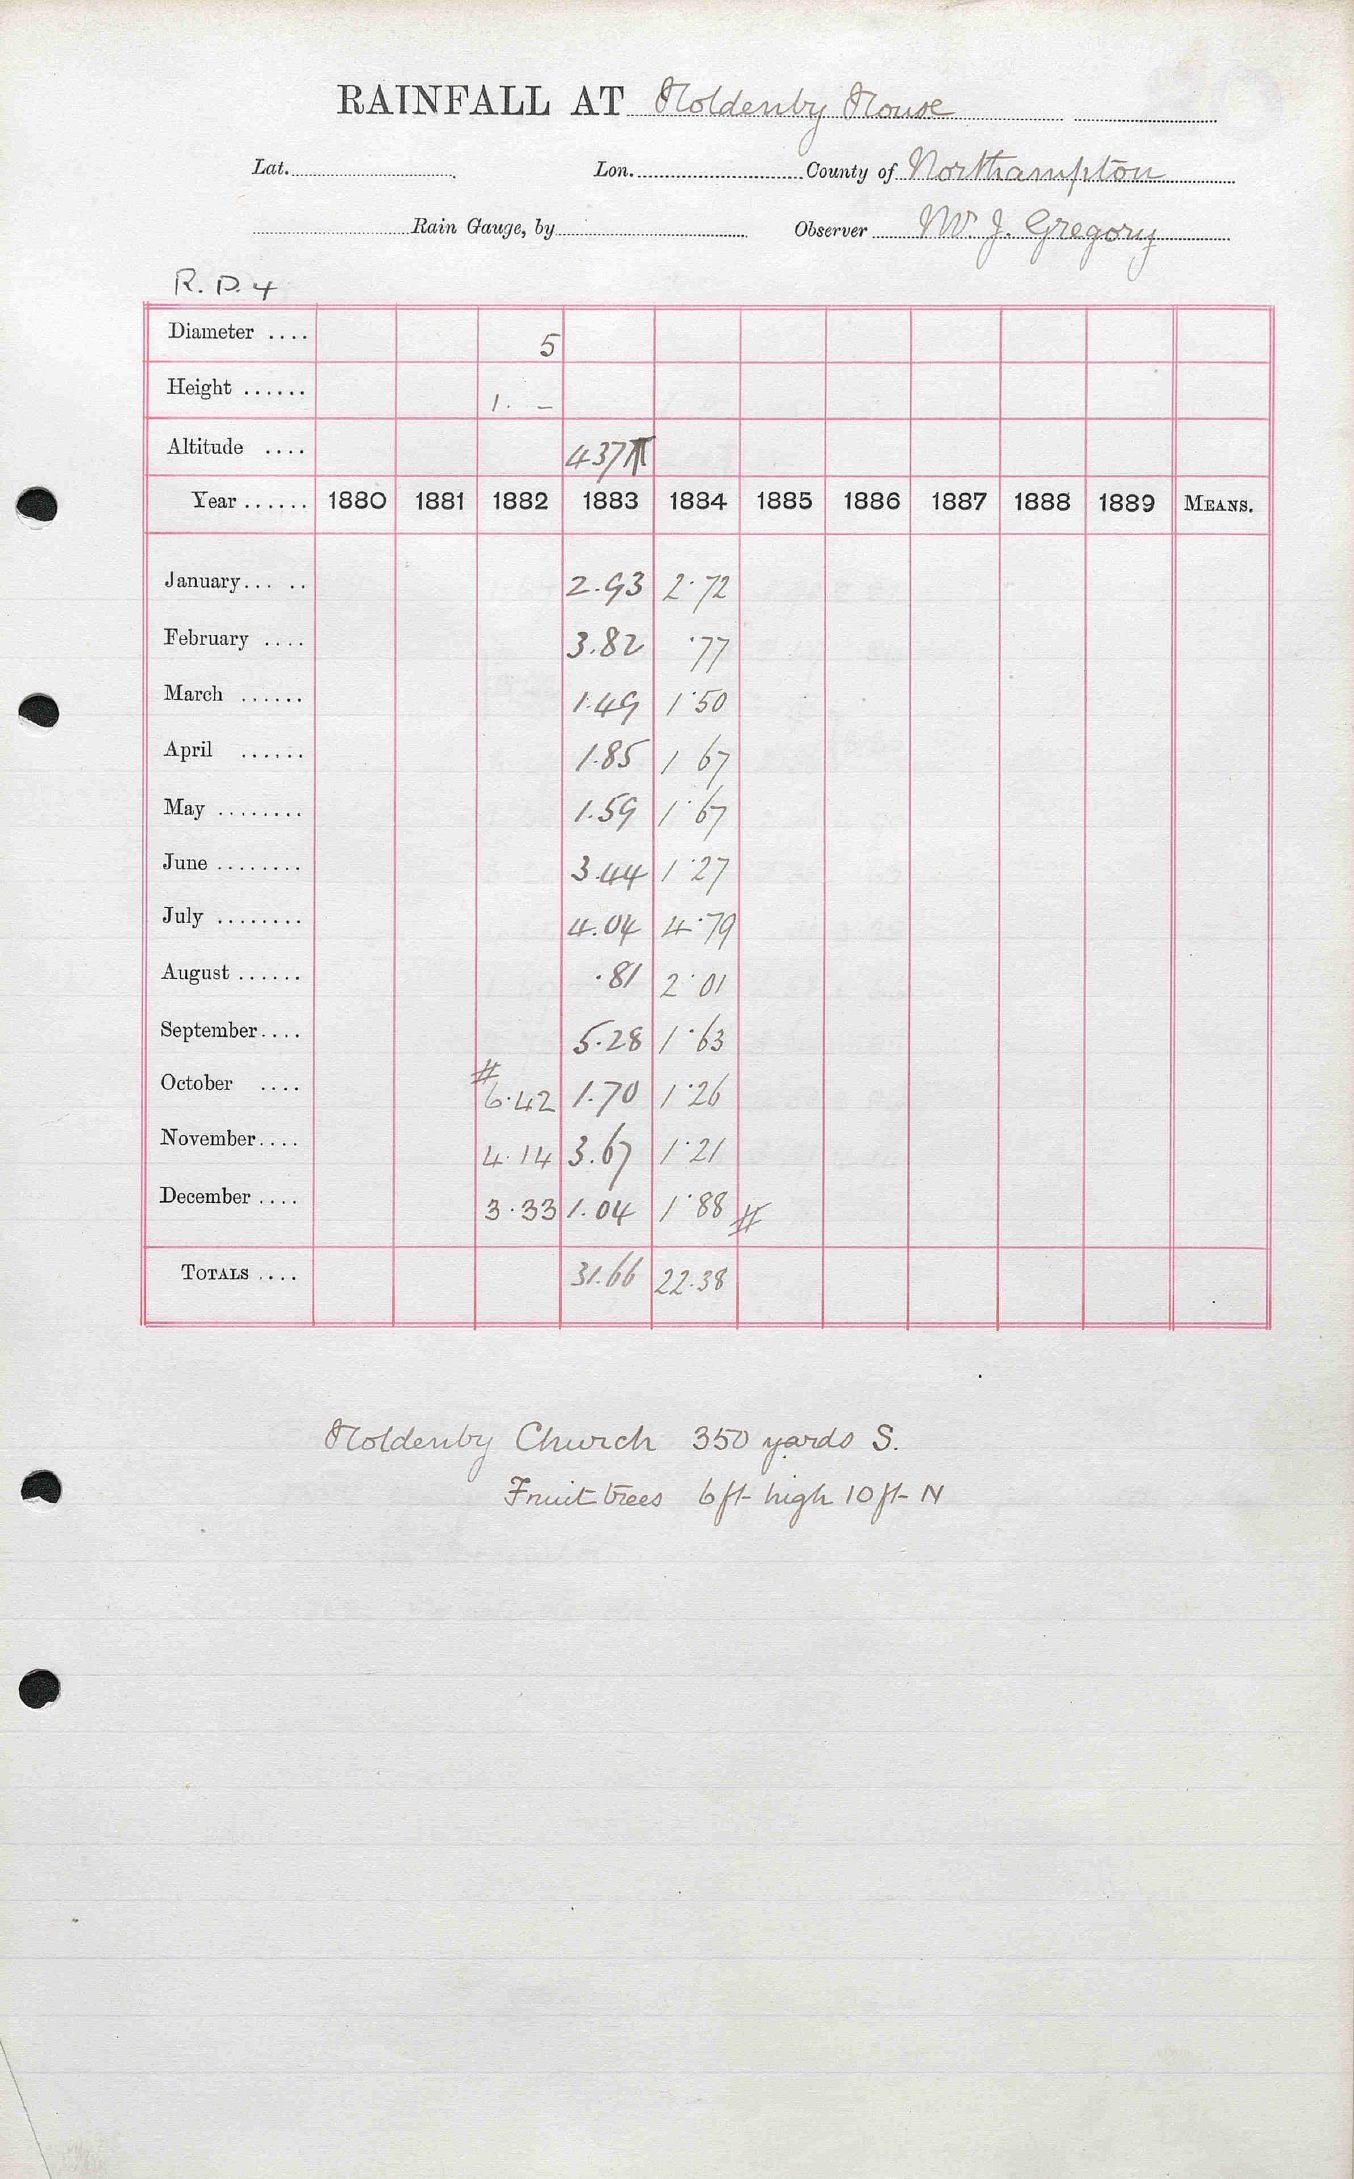 RAINFALL AT Holdenby House
Lat. Lon. County of Northampton
Rain Gauge, by Observer Mr J. Gregory
R. D. 4
Diameter .... 5
Height ...... 1. –
Altitude .... 437
Year ...... 1880 1881 1882 1883 1884 1885 1886 1887 1888 1889 MEANS.
January... .. 2.93 2.72
February .... 3.82 .77
March ...... 1.49 1.50
April ...... 1.85 1 67
May ........ 1.59 1.67
June ........ 3.44 1.27
July ........ 4.04 4.79
August ...... .81 2.01
September.... 5.28 1.63
October .... # 6.42 1.70 1.26
November.... 4.14 3.67 1.21
December .... 3.33 1.04 1.88 #
TOTALS .... 31.66 22.38
Holdenby Church 350 yards S.
Fruit trees 6 ft high 10 ft N